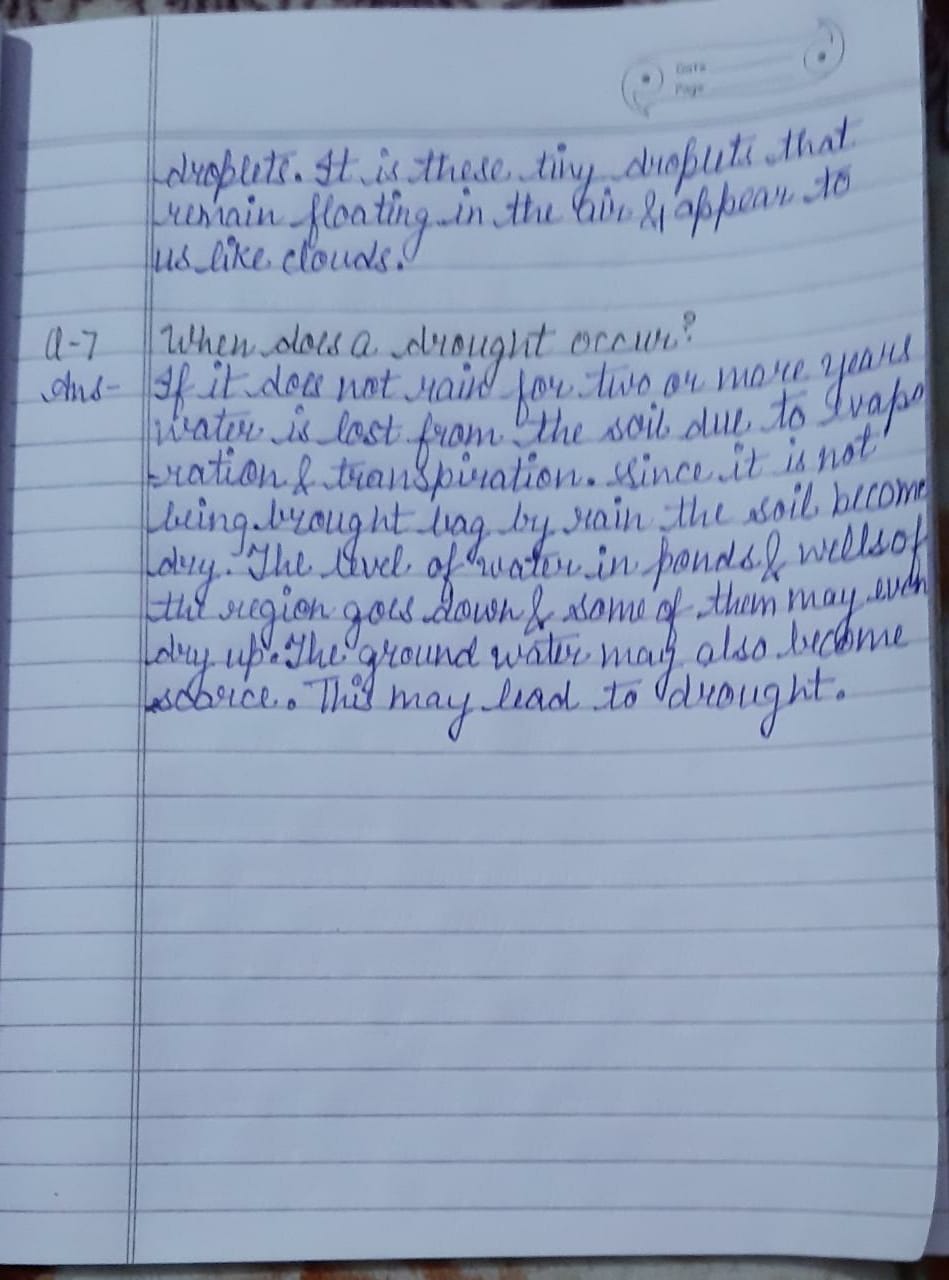 Date
Page
droplets. It is these tiny droplets that
remain floating in the air & appear to
us like clouds.
Q-7 When does a drought occur?
Ans- If it does not rain for two or more years
water is lost from the soil due to Evapo
-ration & transpiration. Since it is not
being brought bag by rain the soil become
dry. The level of water in ponds & wells of
the region goes down & some of them may even
dry up. The ground water may also become
scarce. This may lead to drought.